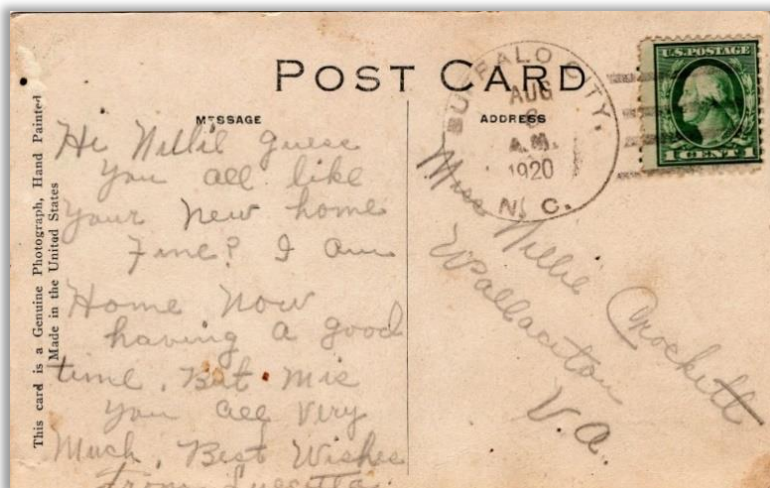 POST CARD
MESSAGE
ADDRESS
This card is a Genuine Photograph, Hand Painted
Made in the United States
Hi Willie guess
you all like
your new home
Fine? I am
Home Now
having a good
time. But Mis
you all Very
Much. Best Wishes
from
BUFFALO CITY,
AUG
6
A.M.
1920
N. C.
U.S. POSTAGE
1 CENT 1
Miss Willie Crockett
Wallaceton
V.a.